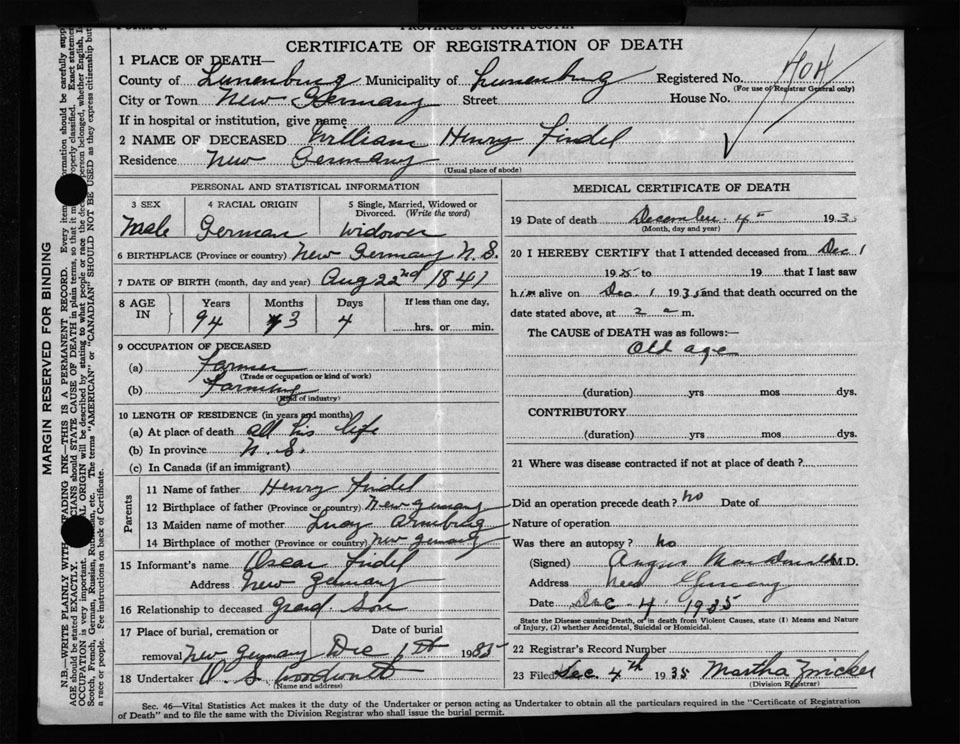 PROVINCE OF NOVA SCOTIA
CERTIFICATE OF REGISTRATION OF DEATH
1 PLACE OF DEATH—
County of Lunenburg Municipality of Lunenburg Registered No. 404
(For use of Registrar General only)
City or Town New Germany Street House No.
If in hospital or institution, give name
2 NAME OF DECEASED William Henry Findel
Residence New Germany
(Usual place of abode)
PERSONAL AND STATISTICAL INFORMATION
3 SEX 4 RACIAL ORIGIN 5 Single, Married, Widowed or Divorced. (Write the word)
Male German Widower
6 BIRTHPLACE (Province or country) New Germany N.S.
7 DATE OF BIRTH (month, day and year) Aug 22nd 1841
8 AGE IN Years Months Days If less than one day,
94 3 4 hrs. or min.
9 OCCUPATION OF DECEASED
(a) Farmer
(Trade or occupation or kind of work)
(b) Farming
(Kind of industry)
10 LENGTH OF RESIDENCE (in years and months)
(a) At place of death all his life
(b) In province N.S.
(c) In Canada (if an immigrant)
Parents
11 Name of father Henry Findel
12 Birthplace of father (Province or country) New Germany
13 Maiden name of mother Lucy
14 Birthplace of mother (Province or country) New Germany
15 Informant's name Oscar Findel
Address New Germany
16 Relationship to deceased grand Son
17 Place of burial, cremation or removal New Germany Date of burial Dec 1935
18 Undertaker
(Name and address)
MEDICAL CERTIFICATE OF DEATH
19 Date of death December 4 1935
(Month, day and year)
20 I HEREBY CERTIFY that I attended deceased from Dec. 1
1935 to 19 that I last saw
him alive on Dec. 1 1935 and that death occurred on the
date stated above, at 2 a m.
The CAUSE of DEATH was as follows:—
Old age
(duration) yrs mos dys.
CONTRIBUTORY
(duration) yrs mos dys.
21 Where was disease contracted if not at place of death?
Did an operation precede death? no Date of
Nature of operation
Was there an autopsy? no
(Signed) Angus M.D.
Address New Germany
Date Dec 4 1935
State the Disease causing Death, or in death from Violent Causes, state (1) Means and Nature
of Injury, (2) whether Accidental, Suicidal or Homicidal.
22 Registrar's Record Number
23 Filed Dec 4th 1935 Martha Zwicker
(Division Registrar)
Sec. 46—Vital Statistics Act makes it the duty of the Undertaker or person acting as Undertaker to obtain all the particulars required in the "Certificate of Registration
of Death" and to file the same with the Division Registrar who shall issue the burial permit.
MARGIN RESERVED FOR BINDING
N.B.—WRITE PLAINLY WITH FADING INK—THIS IS A PERMANENT RECORD. Every item information should be carefully
AGE should be stated EXACTLY. should STATE CAUSE OF DEATH in plain terms, so that it properly classified. Exact statement
OCCUPATION is very important. ORIGIN will be described by stating to what people or race the person belonged, whether English,
Scotch, French, German, Russian, etc. The terms "AMERICAN" or "CANADIAN" SHOULD NOT BE USED as they express citizenship but
a race or people. See instructions on back of Certificate.